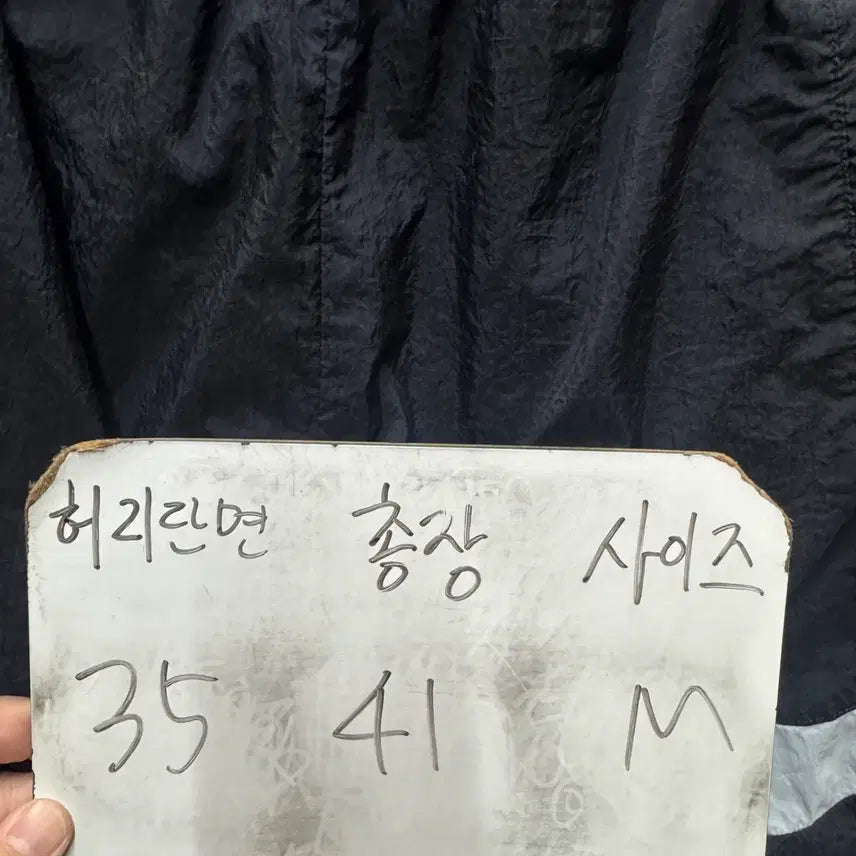 허리단면 총장 사이즈
35 41 M